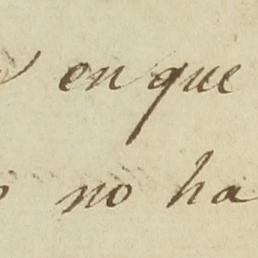 en que
no ha